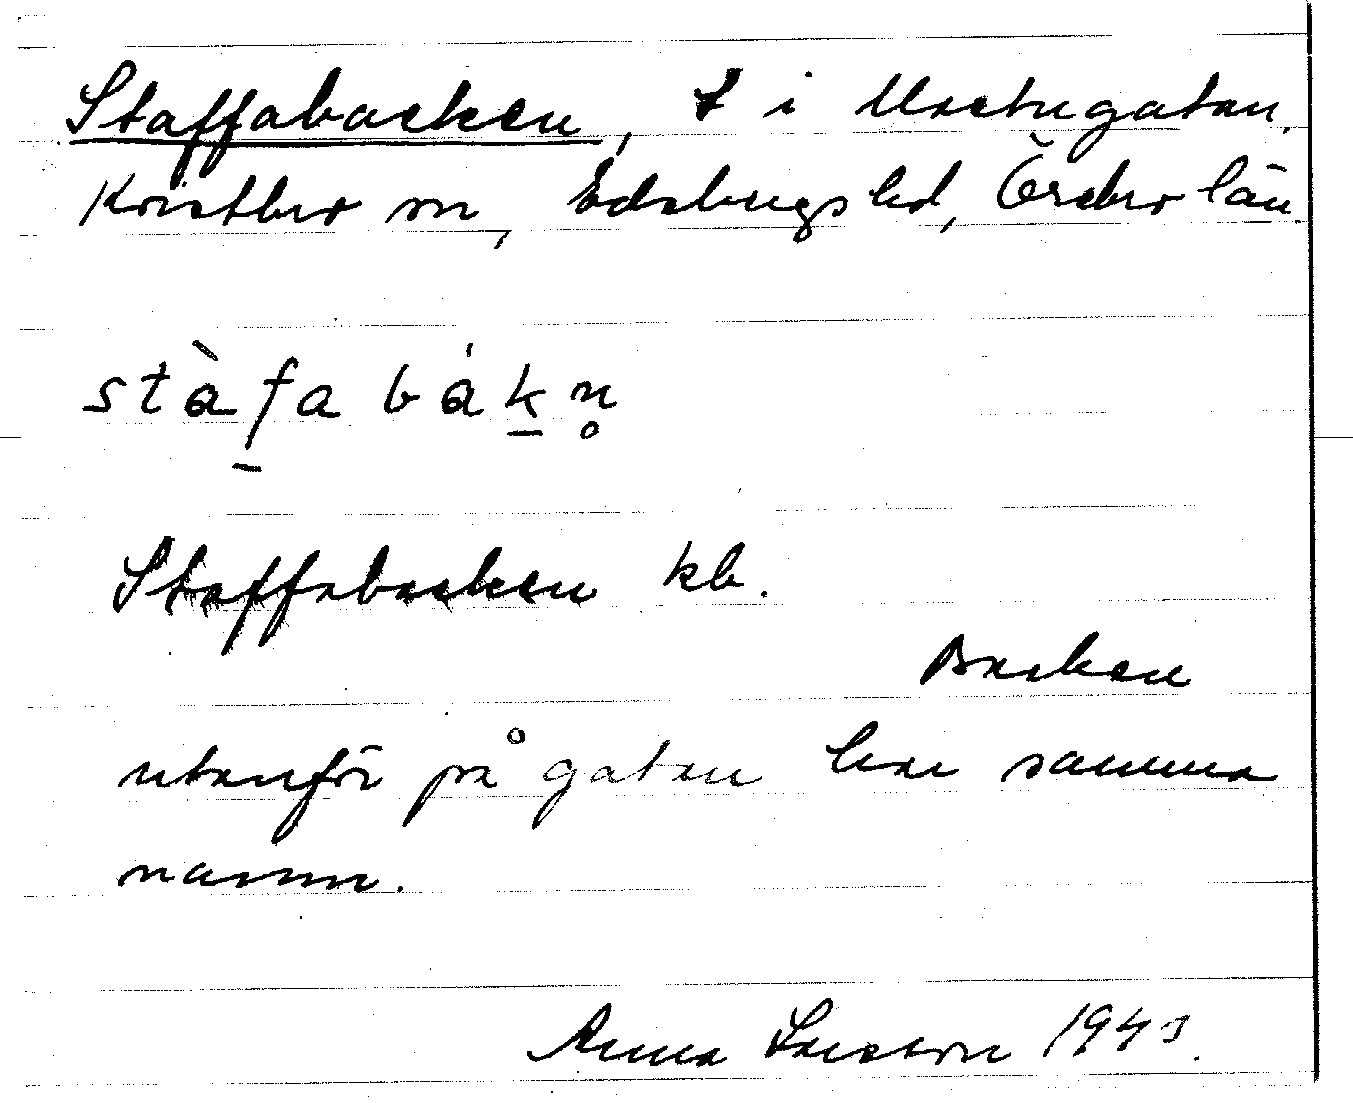 Staffabacken, t i Mastugatan.
Kvistbro sn, Edsbergs hd, Örebro län.
stàfabákn̥
Staffabacken kb.
Backen
utanför på gatan har samma
namn.
Anna Larsson 1943.